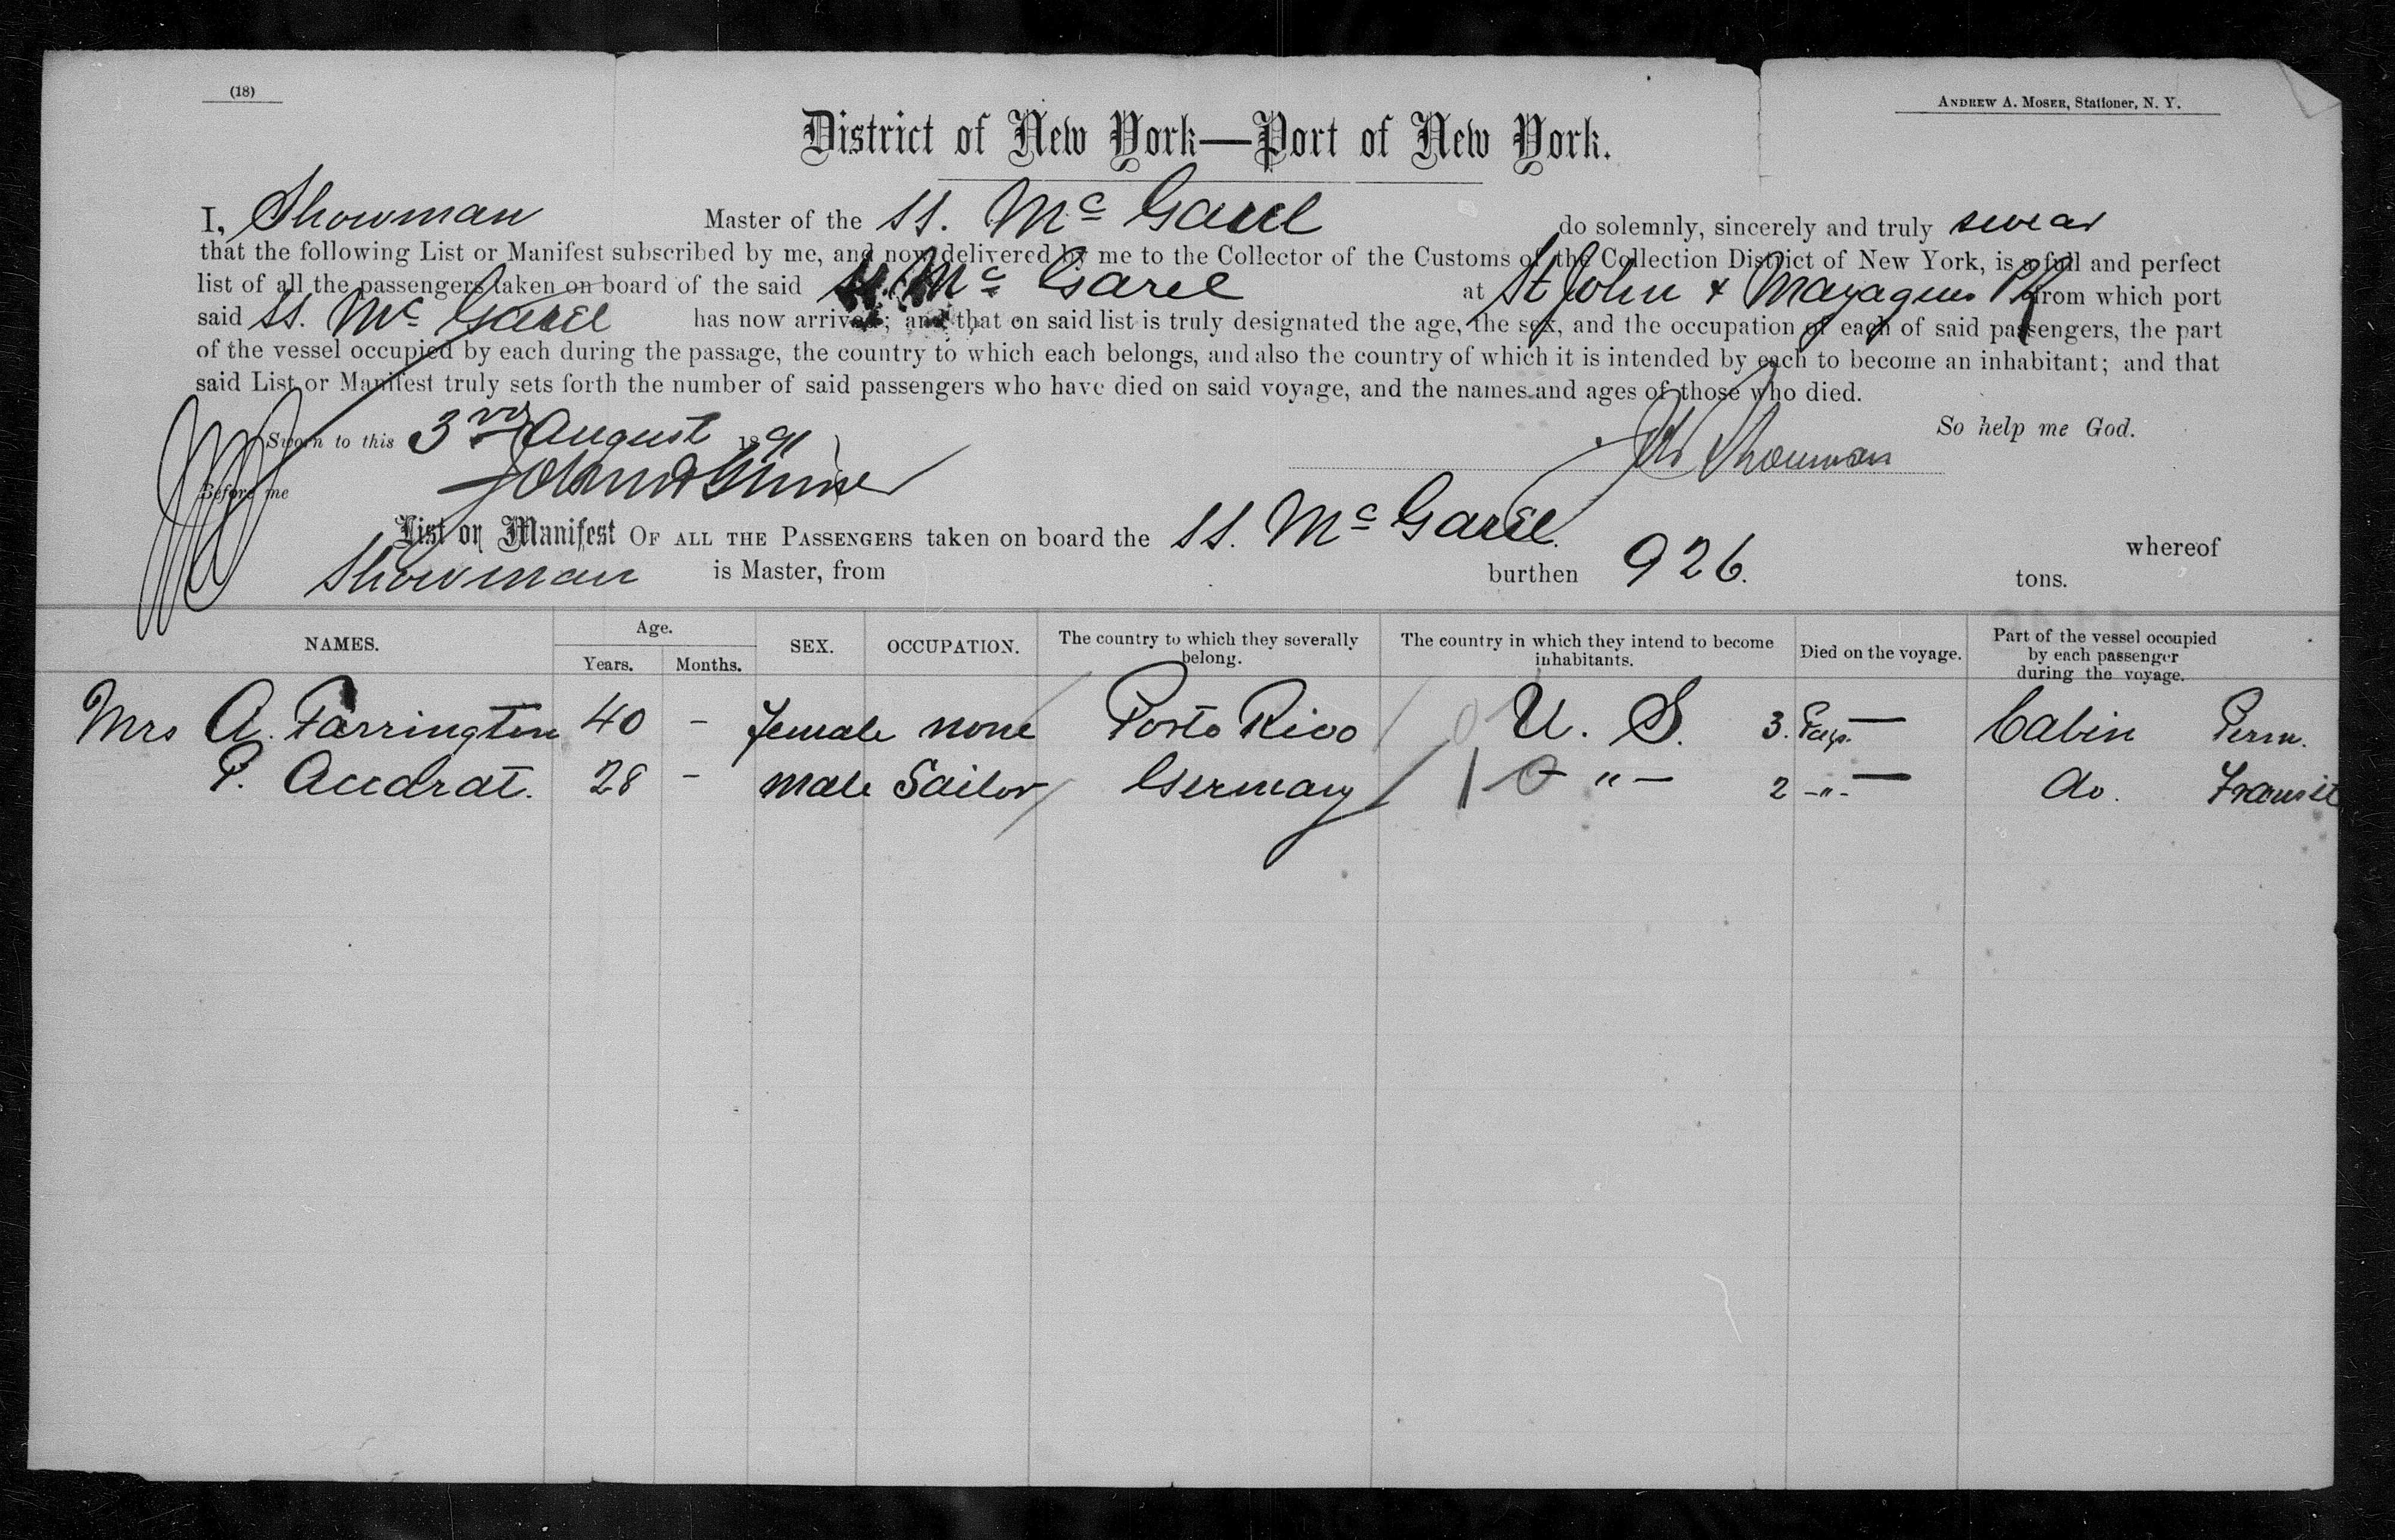 (18)
ANDREW A. MOSER, Stationer, N. Y.
District of New York—Port of New York.
I, Showman Master of the SS. Mc Garel do solemnly, sincerely and truly swear
that the following List or Manifest subscribed by me, and now delivered by me to the Collector of the Customs of the Collection District of New York, is a full and perfect
list of all the passengers taken on board of the said SS. Mc Garel at St John & Mayaguez PR from which port
said SS. Mc Garel has now arrived; and that on said list is truly designated the age, the sex, and the occupation of each of said passengers, the part
of the vessel occupied by each during the passage, the country to which each belongs, and also the country of which it is intended by each to become an inhabitant; and that
said List or Manifest truly sets forth the number of said passengers who have died on said voyage, and the names and ages of those who died.
So help me God.
Sworn to this 3rd August 1891
Showman
Before me
List or Manifest OF ALL THE PASSENGERS taken on board the SS. Mc Garel. whereof
Showman is Master, from burthen 926. tons.
NAMES. Age. Years. Months. SEX. OCCUPATION. The country to which they severally belong. The country in which they intend to become inhabitants. Died on the voyage. Part of the vessel occupied by each passenger during the voyage.
Mrs A. Farrington 40 - female none Porto Rico 0 U. S. 3. — Cabin Perm.
P. 28 - male Sailor Germany 1 0 " — 2 -"- — do. Transit